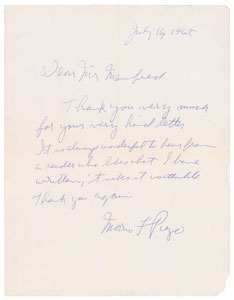 July 16, 1965
Dear Mr Manfred
Thank you very much
for your very kind letter
It is always wonderful to hear from
a reader who likes what I have
written; it makes it worthwhile
Thank you again
Mario Puzo